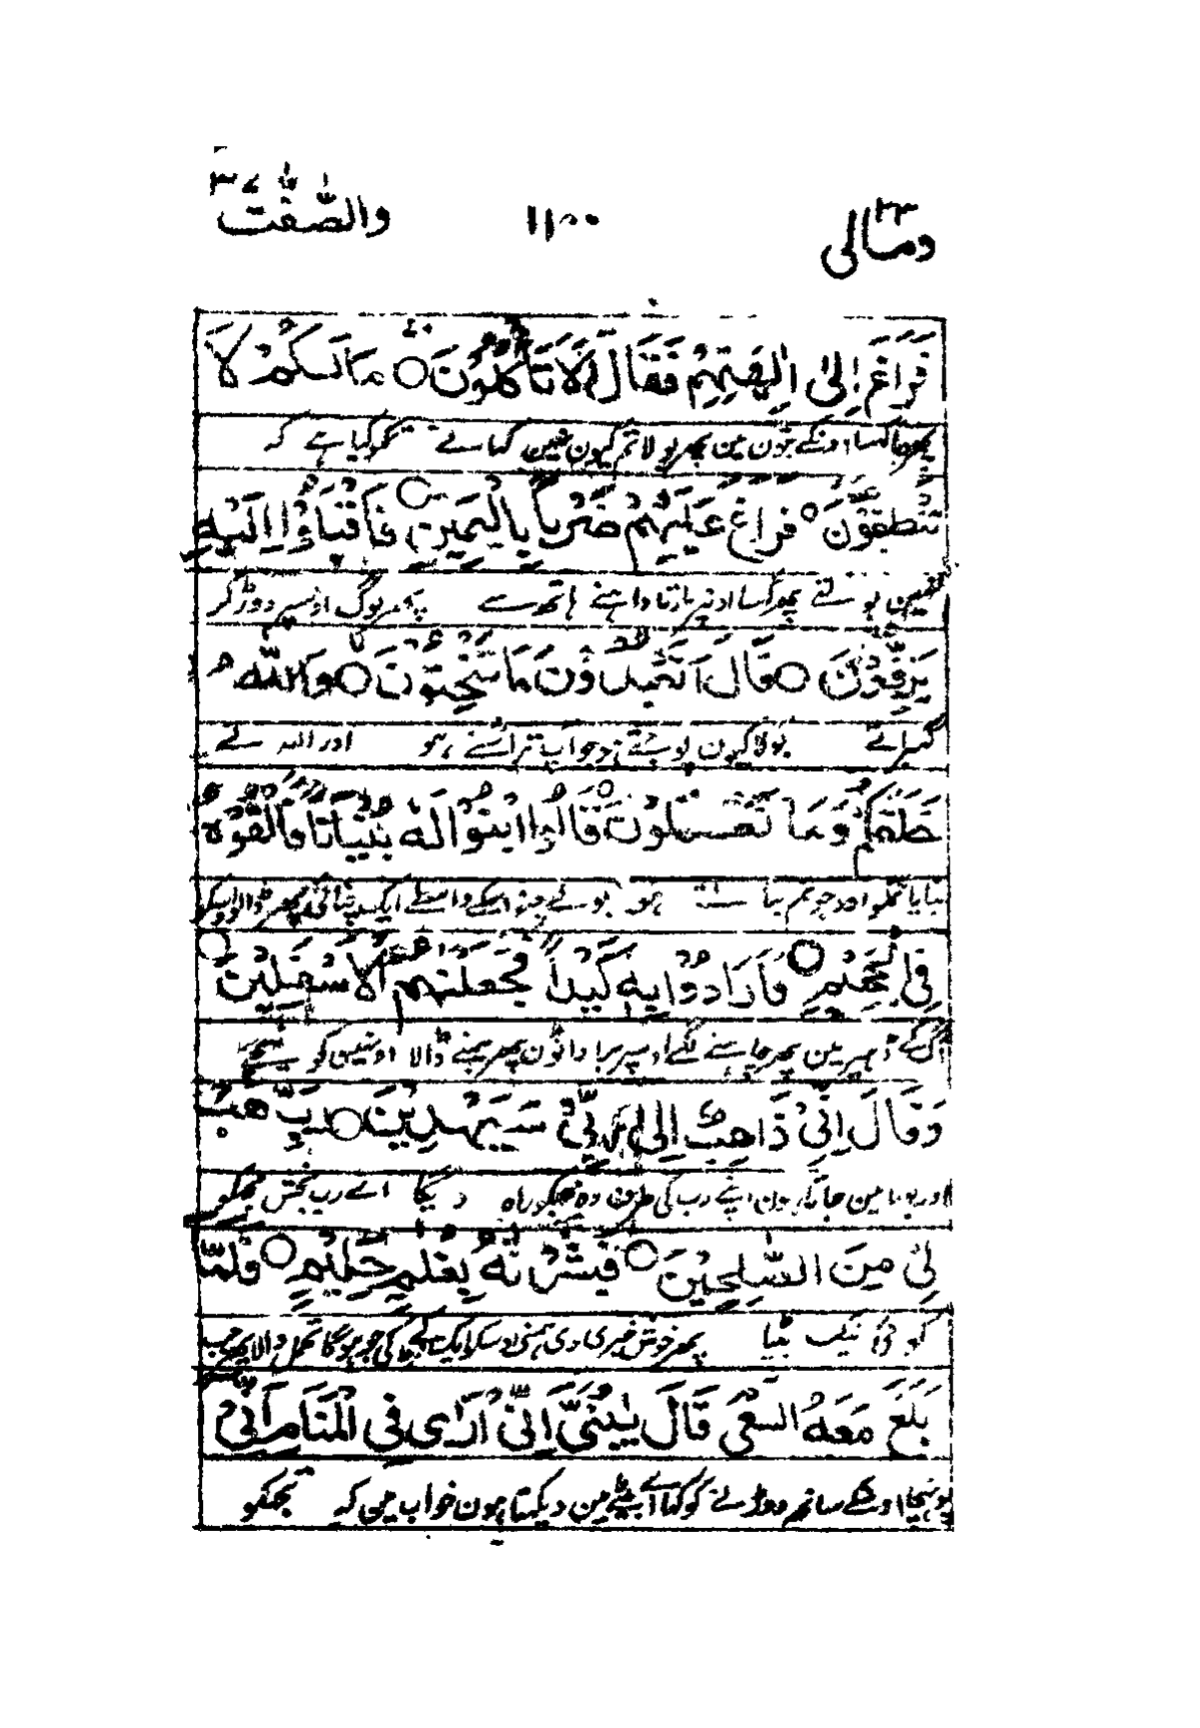 ومالی ۲۳ ۱۱۰۰ والصّٰفّٰت ۳۷
فَرَاغَ اِلٰى اٰلِهَتِهِمْ فَقَالَ اَلَا تَاْكُلُوْنَ ○ مَا لَكُمْ لَا
پھر جا گھسا اونکے بتون مین پھر بولا تم کیون نہین کھاتے تمکو کیا ہے کہ
تَنْطِقُوْنَ ○ فَرَاغَ عَلَيْهِمْ ضَرْبًۢا بِالْيَمِيْنِ ○ فَاَقْبَلُوْۤا اِلَيْهِ
نہین بولتے پھر گھسا اونپر مارتا داہنے ہاتھ سے پھر لوگ اوسپر دوڑ کر
يَزِفُّوْنَ ○ قَالَ اَتَعْبُدُوْنَ مَا تَنْحِتُوْنَ ○ وَاللّٰهُ
گھبراتے بولا کیون پوجتے ہو جو آپ تراشتے ہو اور اللہ نے
خَلَقَكُمْ وَمَا تَعْمَلُوْنَ ○ قَالُوا ابْنُوْا لَهٗ بُنْيَانًا فَاَلْقُوْهُ
بنایا تمکو اور جو تم بناتے ہو بولے چنو اسکے واسطے ایک چنائی پھر ڈالو اسکو
فِى الْجَحِيْمِ ○ فَاَرَادُوْا بِهٖ كَيْدًا فَجَعَلْنٰهُمُ الْاَسْفَلِيْنَ ○
آگ کے ڈھیر مین پھر چاہنے لگے اوسپر برا داؤن پھر ہمنے ڈالا اونہین کو نیچے
وَقَالَ اِنِّيْ ذَاهِبٌ اِلٰى رَبِّيْ سَيَهْدِيْنِ ○ رَبِّ هَبْ
اور بولا مین جاتا ہون اپنے رب کی طرف وہ مجھکو راہ دیگا اے رب بخش مجھکو
لِيْ مِنَ الصّٰلِحِيْنَ ○ فَبَشَّرْنٰهُ بِغُلٰمٍ حَلِيْمٍ ○ فَلَمَّا
کوئی نیک بیٹا پھر خوش خبری دی ہمنی اوسکو ایک لڑکے کی جو ہوگا تحمل والا پھر جب
بَلَغَ مَعَهُ السَّعْيَ قَالَ يٰبُنَيَّ اِنِّيْۤ اَرٰى فِى الْمَنَامِ اَنِّيْۤ
پونہچا اوسکے ساتھ دوڑنے کو کہا اے بیٹے مین دیکھتا ہون خواب مین کہ تجھکو